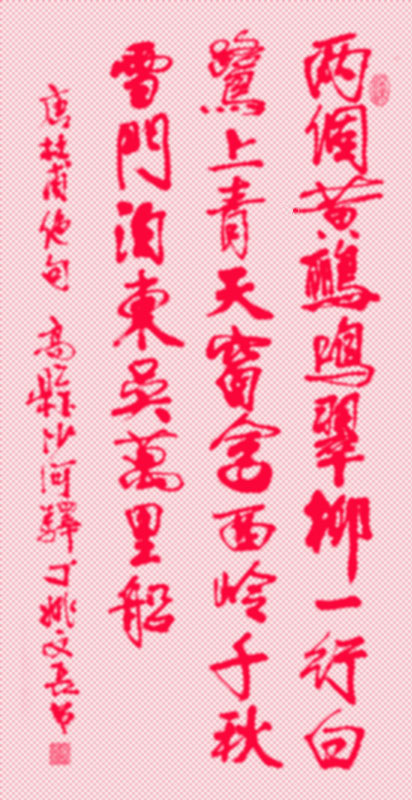 两個黄鸝鳴翠柳一行白
鷺上青天窗含西岭千秋
雪門泊東吳萬里船
唐杜甫绝句 高縣沙河驛 姚文